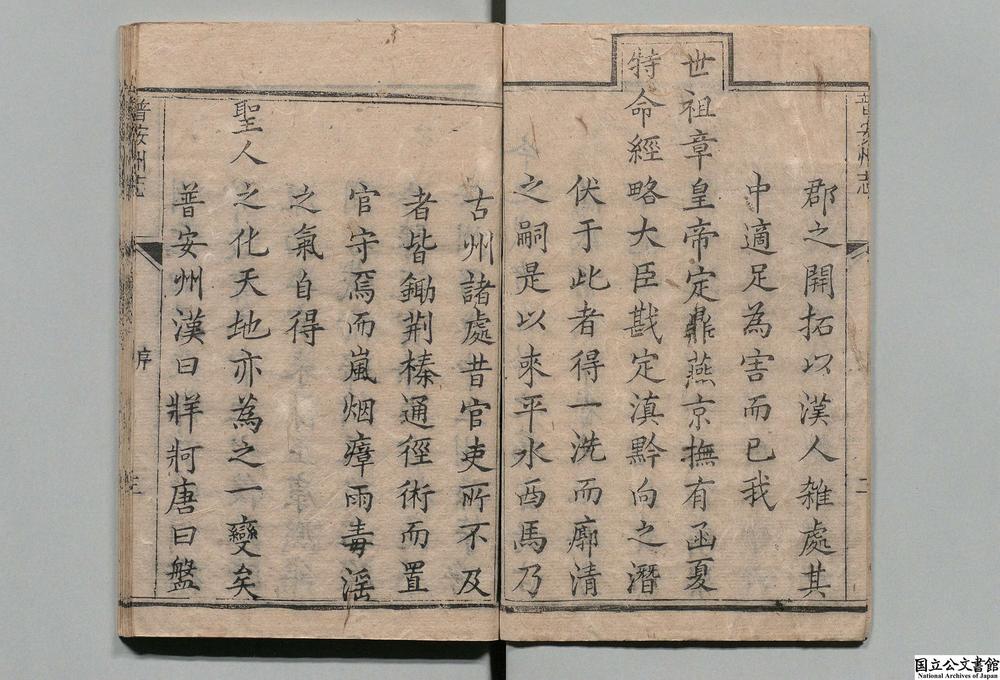 普安州志
二
郡之開拓以漢人雜處其
中適足為害而已我
世祖章皇帝定鼎燕京撫有函夏
特命經略大臣戡定滇黔向之潛
伏于此者得一洗而廓清
之嗣是以來平水西馬乃
古州諸處昔官吏所不及
者皆鋤荆榛通徑術而置
官守焉而嵐烟瘴雨毒淫
之氣自得
聖人之化天地亦為之一變矣
普安州漢曰牂牁唐曰盤
普安州志
序
三
国立公文書館
National Archives of Japan